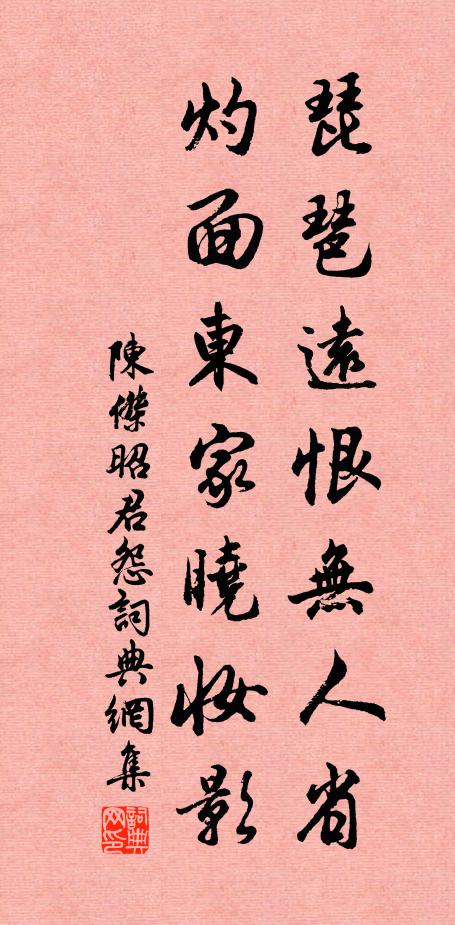 琵琶遠恨無人省
灼面東家曉妝影
陳傑昭君怨詞典網集
詞典网印